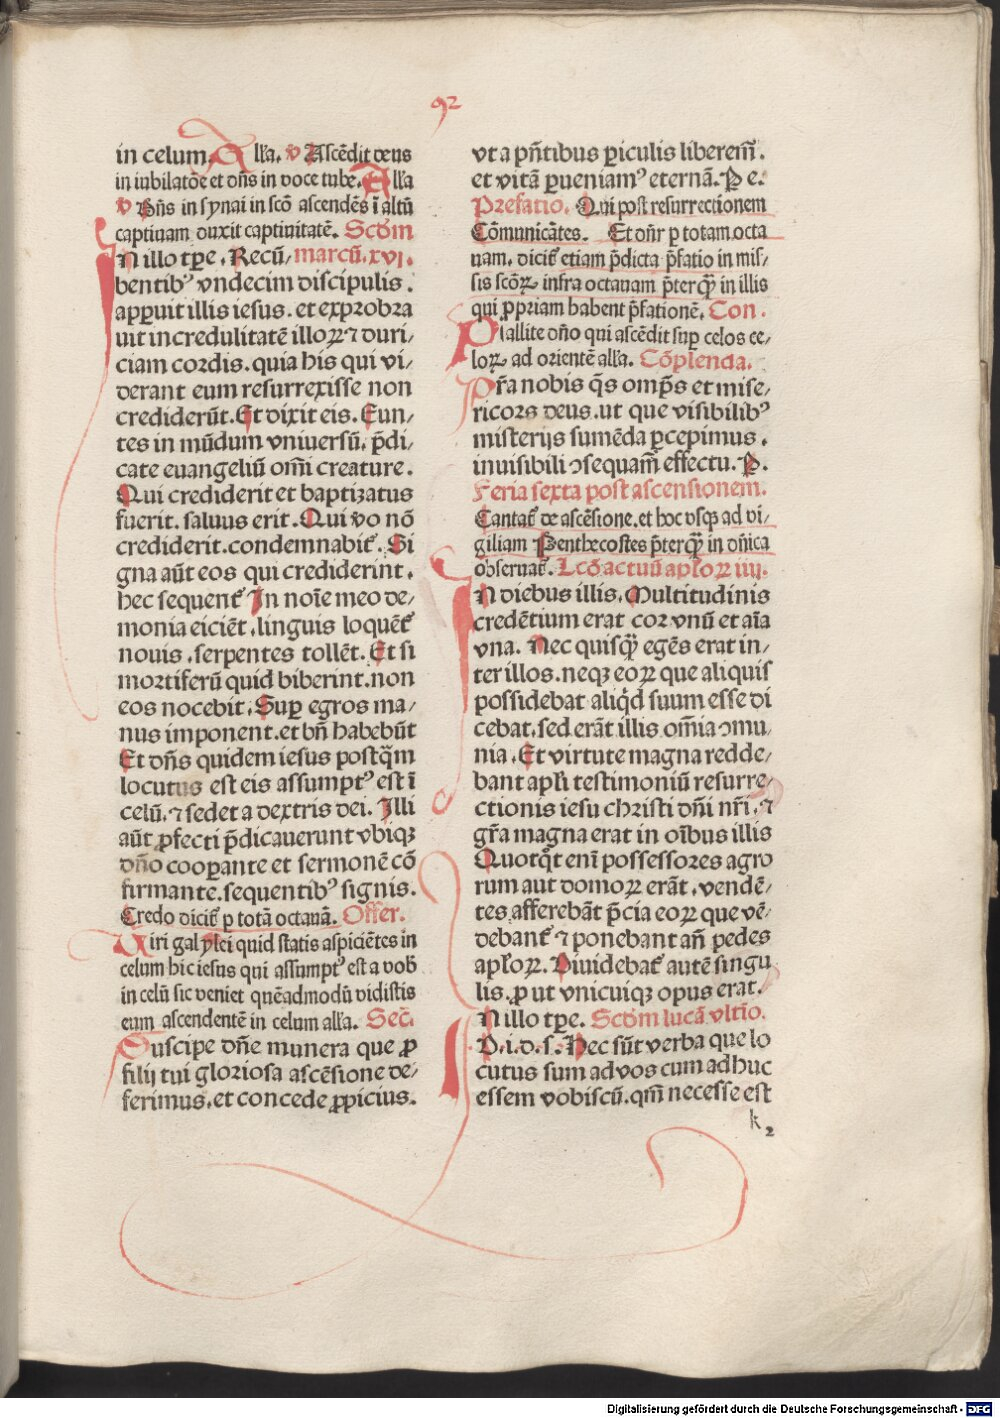 92
in celum. Alła. ꝟ Ascēdit deus
in iubilatōe et dn̄s in voce tube. Alła
ꝟ Dn̄s in synai in scō ascendēs ī altū
captiuam duxit captiuitatē. Scd̄m
marcū. xvi.
IN illo tꝑe. Recū⸗
bentibꝰ vndecim discipulis.
apꝑuit illis iesus. et exprobra
uit incredulitatē illoꝝ ⁊ duri⸗
ciam cordis. quia his qui vi⸗
derant eum resurrexisse non
crediderūt. Et dixit eis. Eun⸗
tes in mūdum vniuersū. p̄di⸗
cate euangeliū om̄i creature.
Qui crediderit et baptizatus
fuerit. saluus erit. Qui vo nō
crediderit. condemnabit᷑. Si
gna aūt eos qui crediderint.
hec sequent᷑ In noīe meo de⸗
monia eiciēt. linguis loquēt᷑
nouis. serpentes tollēt. Et si
mortiferū quid biberint. non
eos nocebit. Suꝑ egros ma⸗
nus imponent. et bn̄ habebūt
Et dn̄s quidem iesus postꝙ̄m
locutus est eis assumptꝰ est ī
celū. ⁊ sedet a dextris dei. Illi
aūt ꝓfecti p̄dicauerunt vbiqꝫ
dn̄o cooꝑante et sermonē cō
firmante. sequentibꝰ signis.
Credo dicit᷑ ꝑ totā octauā. Offer.
Uiri galylei quid statis aspiciētes in
celum hic iesus qui assumptꝰ est a vob̄
in celū sic veniet quēadmodū vidistis
eum ascendentē in celum alła. Sec̄.
Suscipe dn̄e munera que ꝓ
filij tui gloriosa ascēsione de⸗
ferimus. et concede ꝓpicius.
vt a pn̄tibus ꝑiculis liberem̄.
et vitā ꝑueniamꝰ eternā. Ꝑ e.
Prefatio. Qui post resurrectionem
Cōmunicātes. Et dn̄r ꝑ totam octa
uam. dicit᷑ etiam p̄dicta p̄fatio in mis⸗
sis scōꝝ infra octauam p̄terꝙ̄ in illis
qui ꝓpriam habent p̄fationē. Con.
Psallite dn̄o qui ascēdit suꝑ celos ce⸗
loꝝ ad orientē alła. Cōplenda.
Pr̄a nobis qs̄ omp̄s et mise⸗
ricors deus. ut que visibilibꝰ
misterijs sumēda ꝑcepimus.
inuisibili ꝯsequam̄ effectu. Ꝑ.
Feria sexta post ascensionem.
Cantat᷑ de ascēsione. et hoc vsqꝫ ad vi⸗
giliam Penthecostes p̄terꝙ̄ in dn̄ica
obseruat᷑. Lcō actuū apłoꝝ iiij.
IN diebus illis. Multitudinis
credētium erat cor vnū et aīa
vna. Nec quisꝙ̄ egēs erat in⸗
ter illos. neqꝫ eoꝝ que aliquis
possidebat aliqd̄ suum esse di
cebat. sed erāt illis om̄ia ꝯmu⸗
nia. Et virtute magna redde⸗
bant apłi testimoniū resurre⸗
ctionis iesu christi dn̄i nr̄i. ⁊
gr̄a magna erat in oībus illis
Quotqt̄ enī possessores agro
rum aut domoꝝ erāt. vendē⸗
tes afferebāt p̄cia eoꝝ que vē⸗
debant᷑ ⁊ ponebant an̄ pedes
apłoꝝ. Diuidebat᷑ autē singu
lis. ꝓ ut vnicuiqꝫ opus erat.
IN illo tꝑe. Scd̄m lucā vltīo.
D. i. d. s. Hec sūt verba que lo
cutus sum ad vos cum adhuc
essem vobiscū. qm̄ necesse est
k 2
Digitalisierung gefördert durch die Deutsche Forschungsgemeinschaft - DFG